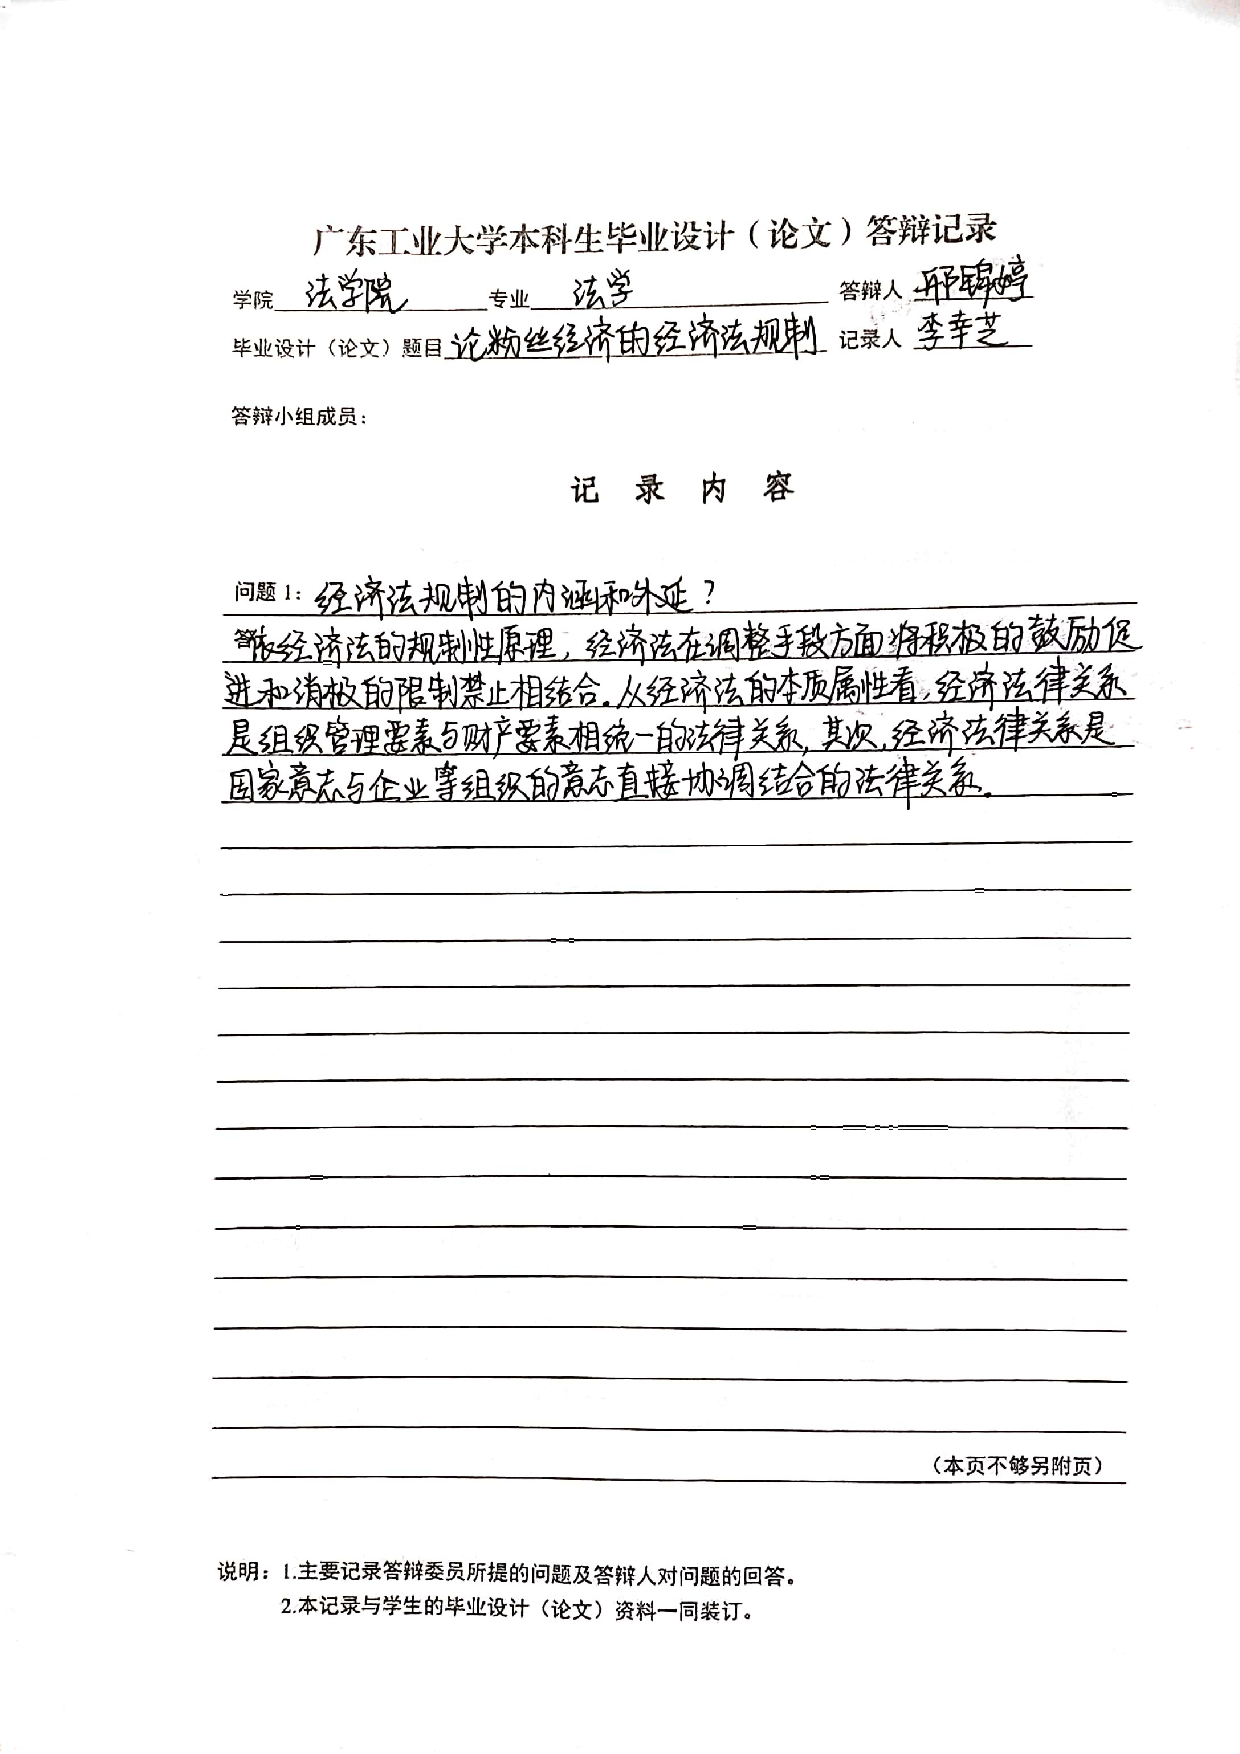 广东工业大学本科生毕业设计（论文）答辩记录
学院 法学院 专业 法学 答辩人 邢锦婷
毕业设计（论文）题目 论粉丝经济的经济法规制 记录人 李幸芝
答辩小组成员：
记 录 内 容
问题 1：经济法规制的内涵和外延？
答：依经济法的规制性原理，经济法在调整手段方面将积极的鼓励促
进和消极的限制禁止相结合。从经济法的本质属性看，经济法律关系
是组织管理要素与财产要素相统一的法律关系，其次，经济法律关系是
国家意志与企业等组织的意志直接协调结合的法律关系。
（本页不够另附页）
说明：1.主要记录答辩委员所提的问题及答辩人对问题的回答。
2.本记录与学生的毕业设计（论文）资料一同装订。